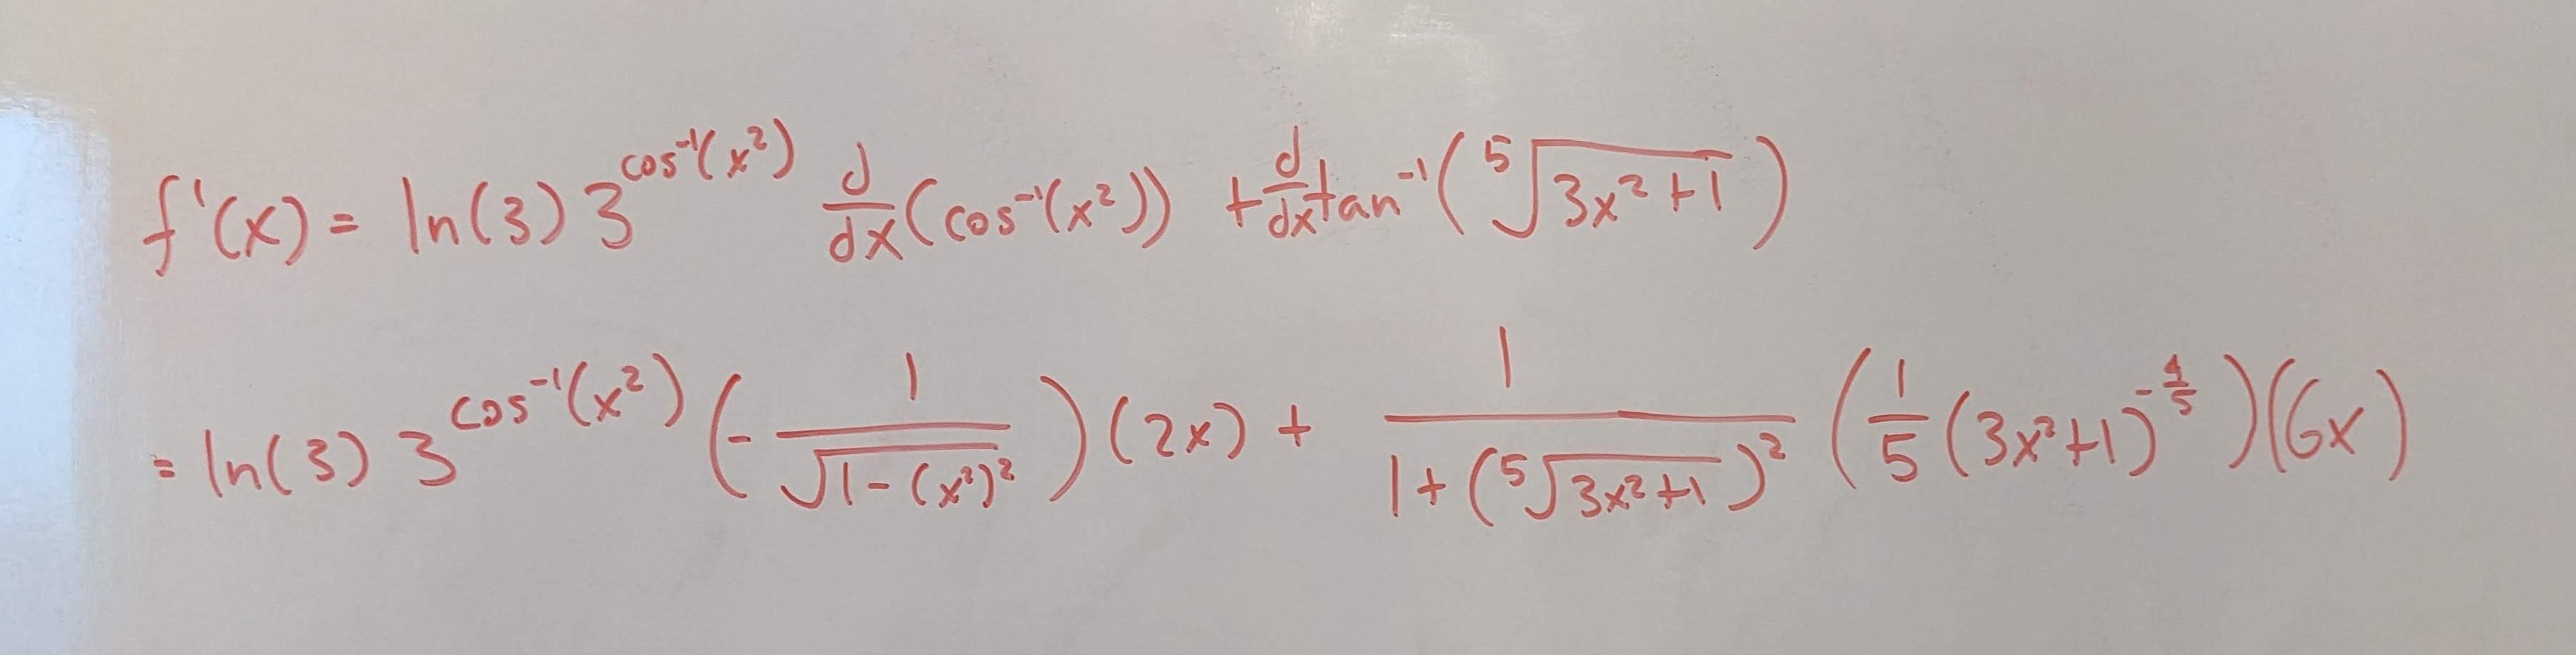 f'(x) = ln(3) 3^{cos⁻¹(x²)} d/dx (cos⁻¹(x²)) + d/dx tan⁻¹(⁵√(3x²+1))
= ln(3) 3^{cos⁻¹(x²)} (-1/√(1-(x²)²)) (2x) + 1/(1+(⁵√(3x²+1))²) (1/5 (3x²+1)^{-4/5}) (6x)